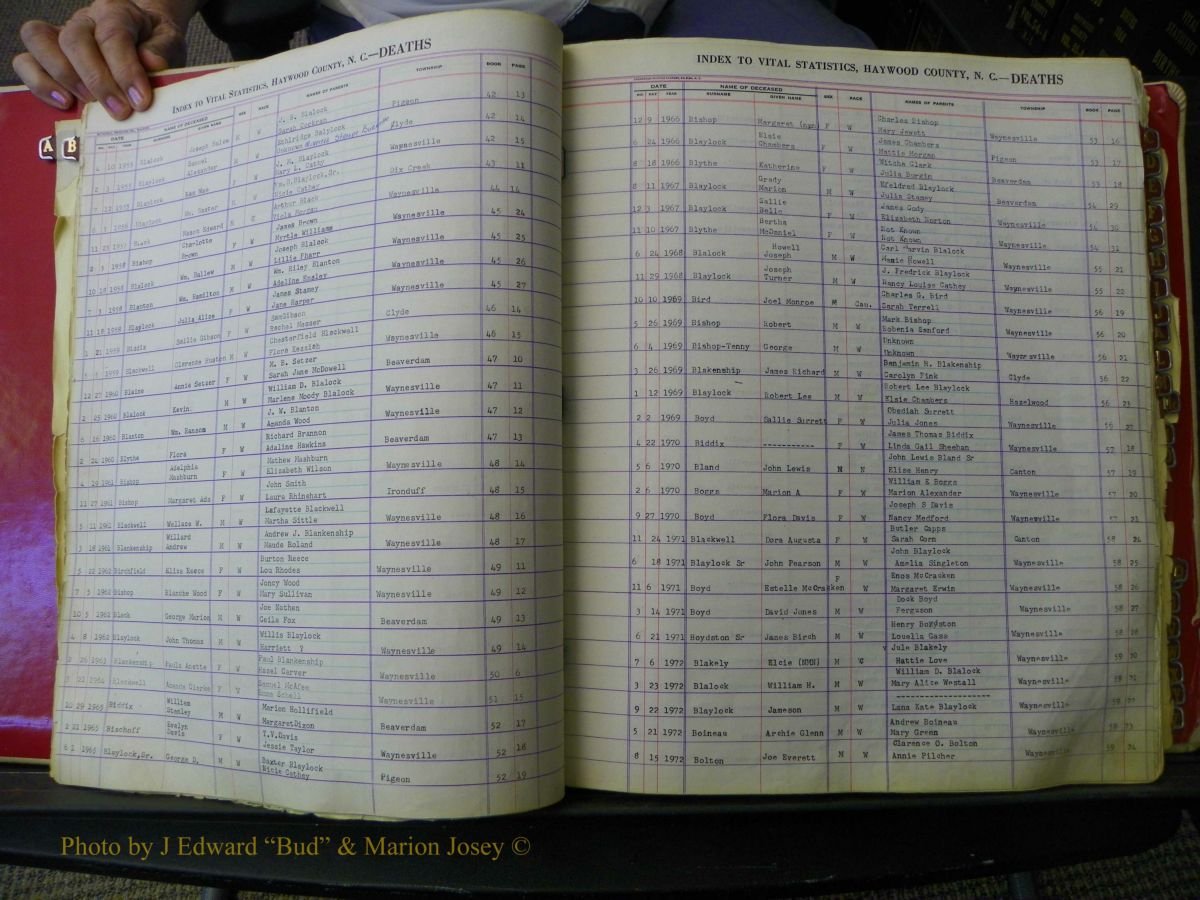 INDEX TO VITAL STATISTICS, HAYWOOD COUNTY, N. C.—DEATHS
DATE NAME OF DECEASED SEX RACE NAMES OF PARENTS TOWNSHIP BOOK PAGE
Blalock J. B. Blalock Pigeon 42 13
Sarah Cockran
Samuel Clyde 42 14
J. H. Blaylock Waynesville 42 15
Mary L. Cathy
Wm.H.Blaylock,Sr. Dix Creek 43 11
Dixie Cathey
Mason Edward Arthur Black Waynesville 44 14
Viola Morgan
Bishop Charlotte Brown F W James Brown Waynesville 45 24
Myrtle Williams
10 18 1958 Blalock Wm. Ballew M W Joseph Blalock Waynesville 45 25
Lillie Pharr
7 3 1958 Blanton Wm. Hamilton M W Wm. Riley Blanton Waynesville 45 26
Adeline Ensley
11 18 1958 Blaylock Julia Alice F W James Stamey Waynesville 45 27
Jane Harper
1 21 1959 Biddix Sallie Gibson F W Sam Gibson Clyde 46 14
Rachel Messer
1959 Blackwell Clarence Huston M W Chesterfield Blackwell Waynesville 46 15
Flora Kezziah
12 27 1960 Blaine Annie Setzer F W M. B. Setzer Beaverdam 47 10
Sarah Jane McDowell
2 25 1960 Blalock Kevin M W William D. Blalock Waynesville 47 11
Marlene Moody Blalock
6 16 1960 Blanton Wm. Ransom M W J. W. Blanton Waynesville 47 12
Amanda Wood
2 24 1960 Blythe Flora F W Richard Brannon Beaverdam 47 13
Adaline Hawkins
4 19 1961 Bishop Adelphia Mashburn F W Mathew Mashburn Waynesville 48 14
Elizabeth Wilson
11 27 1961 Bishop Margaret Ada F W John Smith Ironduff 48 15
Laura Rhinehart
5 11 1961 Blackwell Wallace W. M W Lafayette Blackwell Waynesville 48 16
Martha Sittle
3 18 1961 Blankenship Willard Andrew M W Andrew J. Blankenship Waynesville 48 17
Maude Roland
5 22 1962 Birchfield Eliza Reece F W Burton Reece Waynesville 49 11
Lou Rhodes
7 5 1962 Bishop Blanche Wood F W Joney Wood Waynesville 49 12
Mary Sullivan
10 5 1962 Black George Marion M W Joe Nathen Beaverdam 49 13
Ceila Fox
4 8 1962 Blaylock John Thomas M W Willis Blaylock Waynesville 49 14
Harriett ?
26 1963 Blankenship Paula Anette F W Paul Blankenship Waynesville 50 6
Hazel Carver
22 1964 Blackwell Amanda Clarke F W Samuel McAfee Waynesville 51 15
10 29 1965 Biddix William Stanley M W Marion Hollifield Beaverdam 52 17
MargaretDixon
2 21 1965 Bischoff Evelyn Davis F W T.V.Davis Waynesville 52 18
Jessie Taylor
6 1 1965 Blaylock,Sr. George D. M W Baxter Blaylock Pigeon 52 19
Dicie Cathey
INDEX TO VITAL STATISTICS, HAYWOOD COUNTY, N. C.—DEATHS
DATE NAME OF DECEASED SEX RACE NAMES OF PARENTS TOWNSHIP BOOK PAGE
MO. DAY YEAR SURNAME GIVEN NAME
12 9 1966 Bishop Margaret (nmn) F W Charles Bishop Waynesville 53 16
Mary Jewett
6 24 1966 Blaylock Elsie Chambers F W James Chambers Pigeon 53 17
Mattie Morgan
8 18 1966 Blythe Katherine F W Witcha Clark Beaverdam 53 18
Julia Durkin
8 11 1967 Blaylock Grady Marion M W Mfeldred Blaylock Beaverdam 54 29
Julia Stamey
12 3 1967 Blaylock Sallie Belle F W James Gody Waynesville 54 30
Elizabeth Norton
11 10 1967 Blythe Bertha McDaniel F W Not Known Waynesville 54 31
Not Known
6 24 1968 Blalock Howell Joseph M W Carl Marvin Blalock Waynesville 55 21
Mamie Howell
11 29 1968 Blaylock Joseph Turner M W J. Fredrick Blaylock Waynesville 55 22
Nancy Louise Cathey
10 10 1969 Bird Joel Monroe M Cau. Charles G. Bird Waynesville 56 19
Sarah Terrell
5 26 1969 Bishop Robert M W Mark Bishop Waynesville 56 20
Robenia Sanford
6 4 1969 Bishop-Tenny George M W Unknown Waynesville 56 21
Unknown
3 26 1969 Blakenship James Richard M W Benjamin H. Blakenship Clyde 56 22
Carolyn Fink
1 12 1969 Blaylock Robert Lee M W Robert Lee Blaylock Hazelwood 56 23
Elsie Chambers
2 2 1969 Boyd Sallie Surrett F W Obediah Surrett Waynesville 56
Julia Jones
4 22 1970 Biddix ----------- F W James Thomas Biddix Waynesville 57 18
Linda Gail Sheehan
5 6 1970 Bland John Lewis N N John Lewis Bland Sr Canton 57 19
Elise Henry
2 6 1970 Boggs Marion A F W William E Boggs Waynesville 57 20
Marion Alexander
9 27 1970 Boyd Flora Davis F W Joseph S Davis Waynesville 57 21
Nancy Medford
11 24 1971 Blackwell Dora Augusta F W Butler Capps Canton 58 24
Sarah Corn
6 18 1971 Blaylock Sr John Pearson M W John Blaylock Waynesville 58 25
Amelia Singleton
11 6 1971 Boyd Estelle McCracken F W Enos McCracken Waynesville 58 26
Margaret Erwin
3 14 1971 Boyd David Jones M W Dock Boyd Waynesville 58 27
Ferguson
6 21 1971 Boydston Sr James Birch M W Henry Boydston Waynesville 58 28
Louella Gass
7 6 1972 Blakely Elcie (NMN) M Jule Blakely Waynesville 59 20
Hattie Love
3 23 1972 Blalock William H. M W William D. Blalock Waynesville 59 21
Mary Alice Westall
9 22 1972 Blaylock Jameson M W -------------------- Waynesville 59
Lana Kate Blaylock
5 21 1972 Boineau Archie Glenn M W Andrew Boineau Waynesville 59 23
Mary Green
8 15 1972 Bolton Joe Everett M W Clarence O. Bolton Waynesville 59 24
Annie Pilcher
A B
Photo by J Edward “Bud” & Marion Josey ©